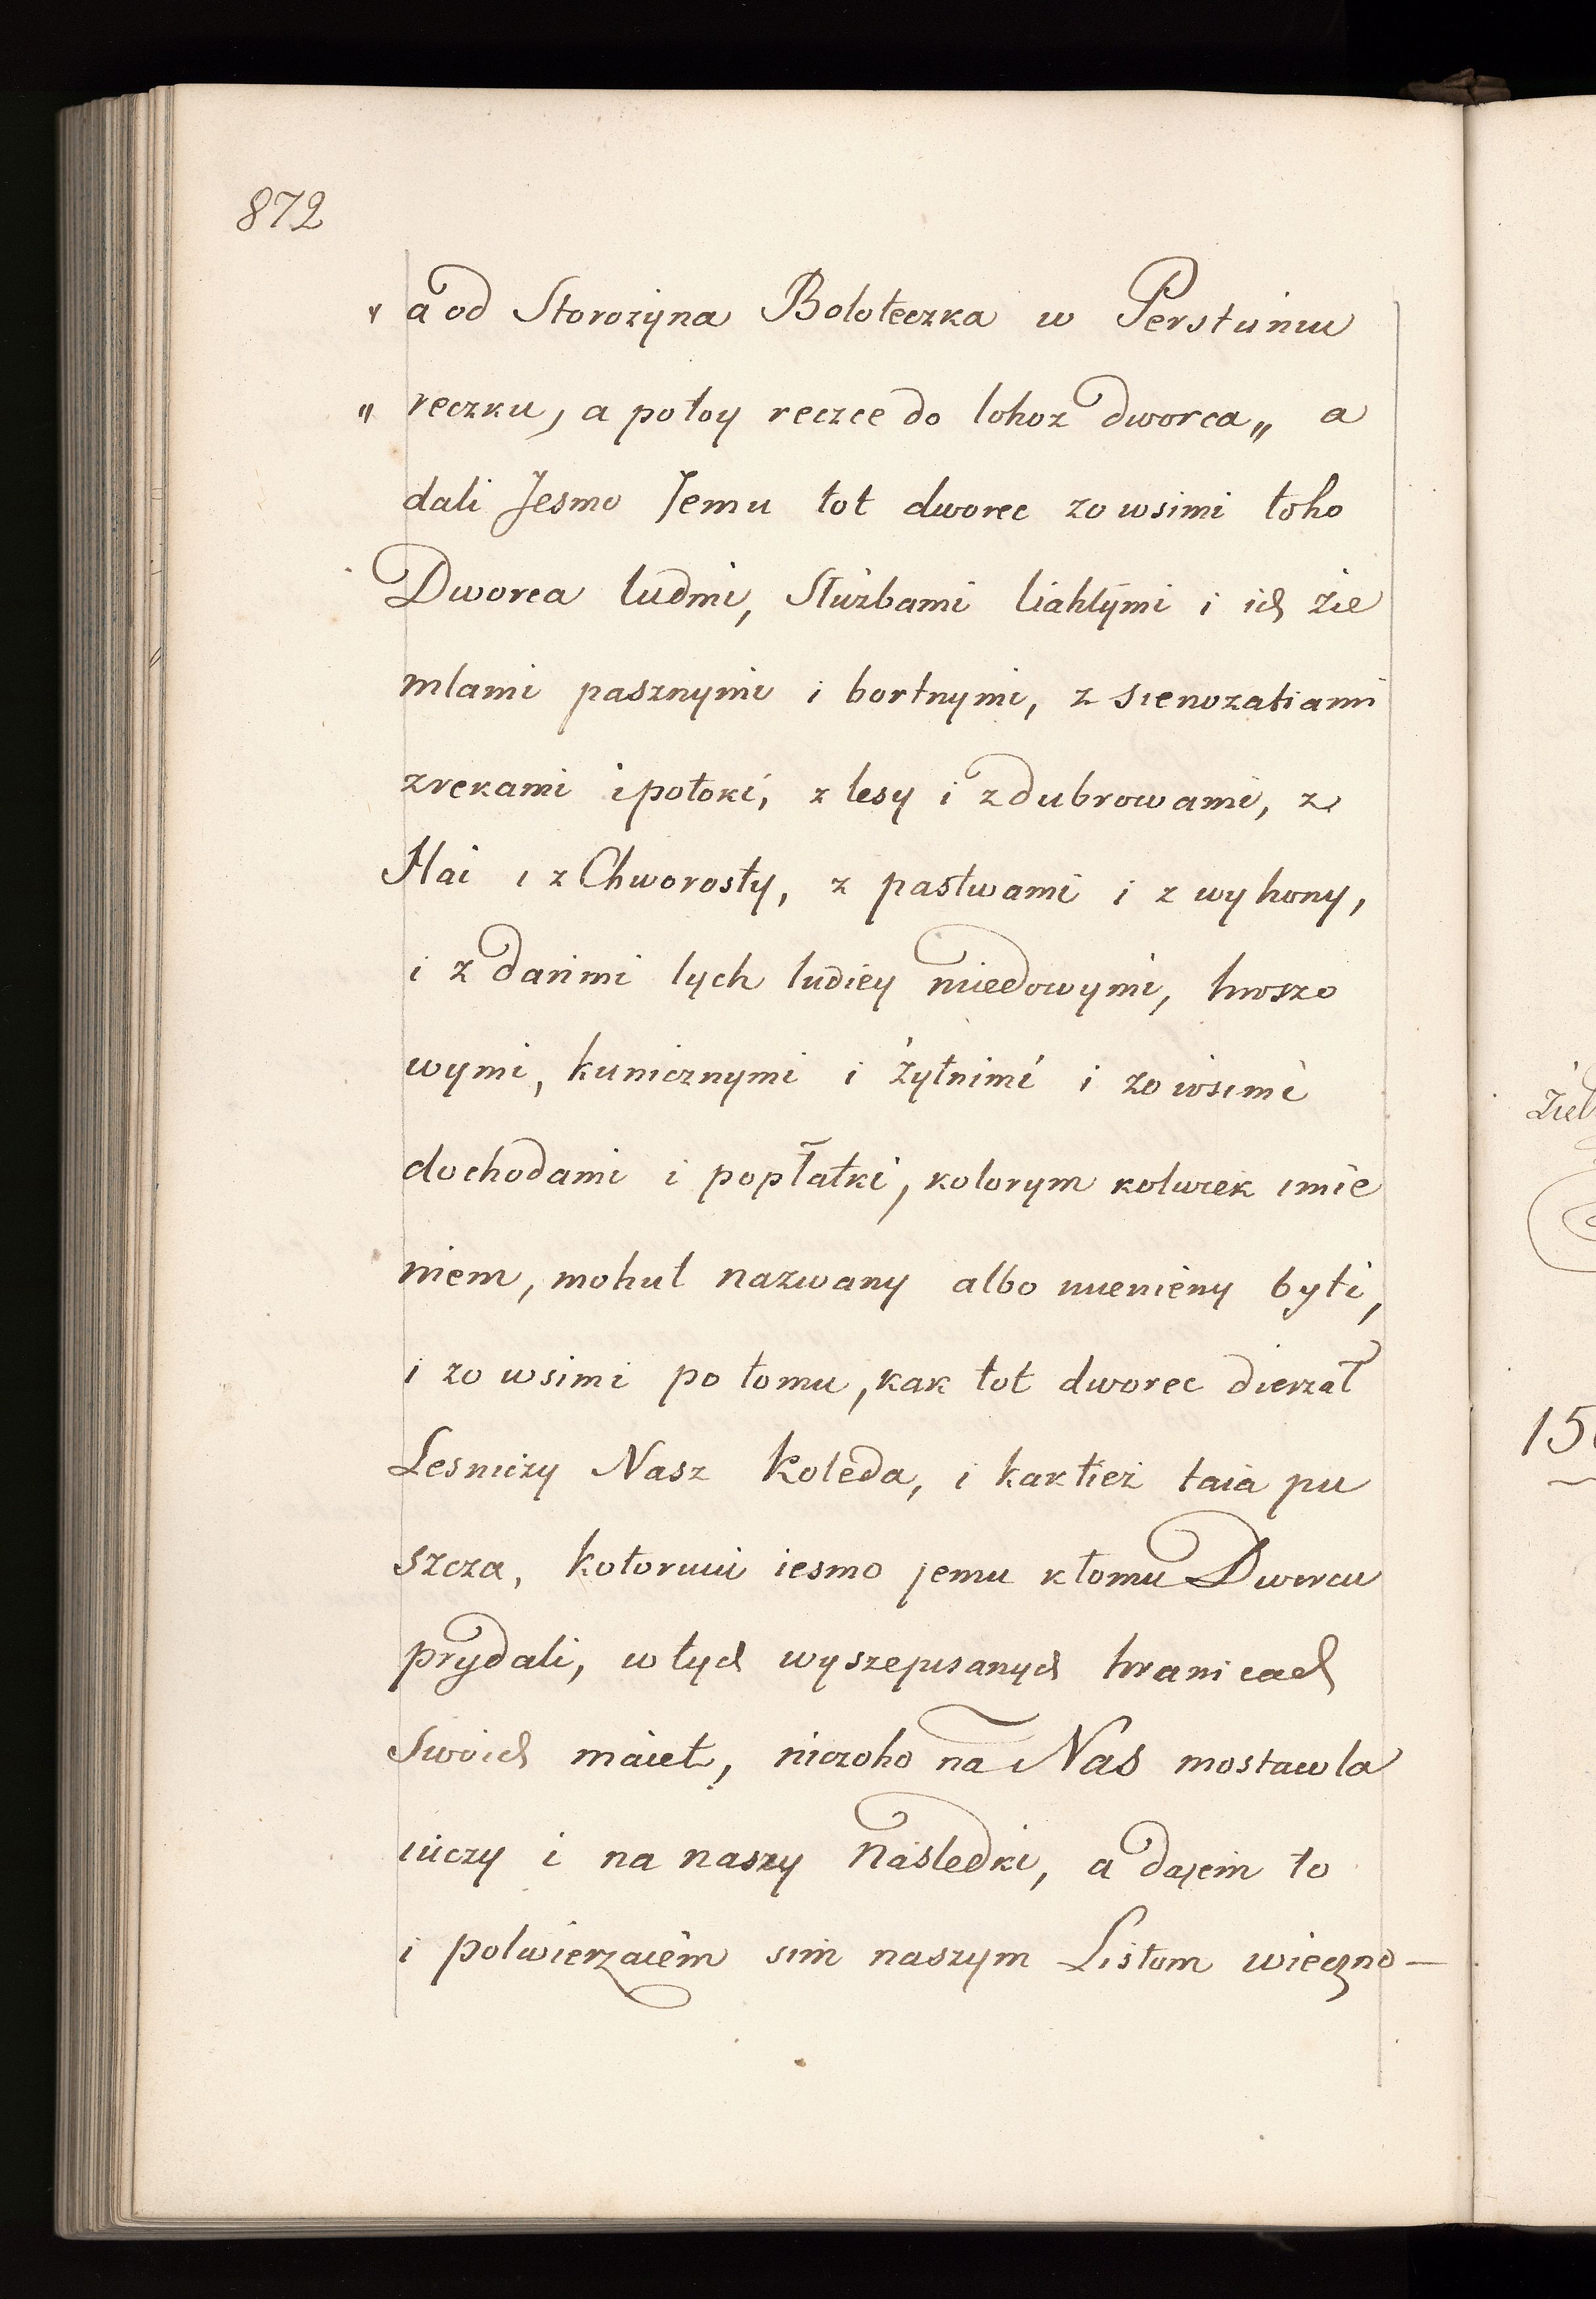 872
„ a od Storożyna Bołoteczka w Perstuniu
„ reczku, a potoy reczce do tohoż dworca „ a
dali Jesmo Jemu tot dworec zo wsimi toho
Dworca ludmi, Służbami liahłymi i ich zie
mlami pasznymi i bortnymi, z sienozatiami
zrekami i potoki, z lesy i z dubrowami, z
Hai i z Chworosty, z pastwami i z wyhony,
i z dańmi tych ludiey miedowymi, hroszo
wymi, kunicznymi i żytnimi i zo wsimi
dochodami i popłatki, kotorym kolwek imie
niem, mohut nazwany albo mienieny byti,
i zo wsimi po tomu, kak tot dworec dierzał
Lesniczy Nasz Koleda, i kak tież taia pu
szcza, kotoruiu iesmo jemu k tomu Dworcu
prydali, w tych wyszepisanych hranicach
Swoich maiet, niczoho na Nas nostawla
iuczy i na naszy nasledki, a dajem to
i potwierzaiem sim naszym Listom wieczno —
Ziel
150